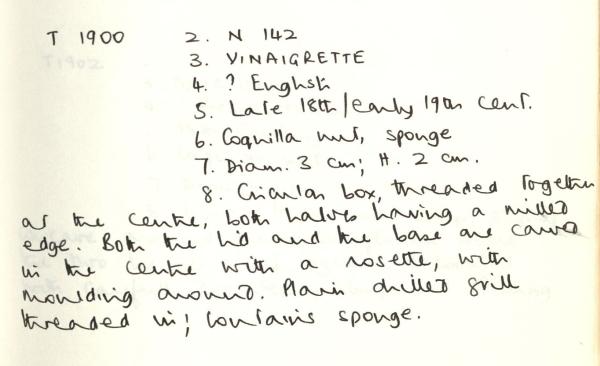 T 1900 2. N 142
3. VINAIGRETTE
4. ? English
5. Late 18th/early 19th cent.
6. Coquilla nut, sponge
7. Diam. 3 cm; H. 2 cm.
8. Circular box, threaded together
at the centre, both halves having a milled
edge. Both the lid and the base are carved
in the centre with a rosette, with
moulding around. Plain drilled grill
threaded in; contains sponge.